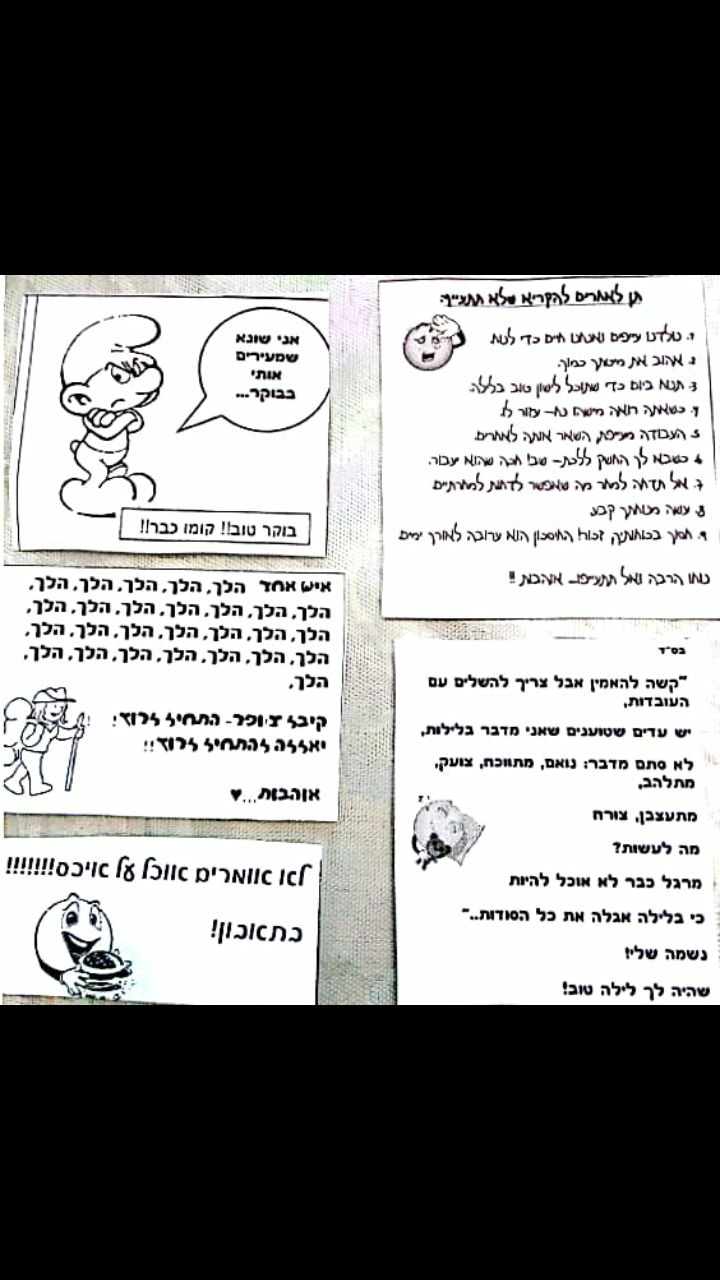 תן לאחרים להקריא שלא תתעייף
1. נולדנו עייפים ואנחנו חיים כדי לנוח.
2. אהוב את מיטתך כמוך.
3. תנוח ביום כדי שתוכל לישון טוב בלילה.
4. כשאתה רואה מישהו נח- עזור לו.
5. העבודה מעייפת, השאר אותה לאחרים.
6. כשבא לך החשק ללכת- שב! חכה שהוא יעבור.
7. אל תדחה למחר מה שאפשר לדחות למחרתיים
8. עשה מנוחתך קבע.
9. חסוך בכוחותיך, זכור! החיסכון הוא ערובה לאורך ימים.
נוחו הרבה ואל תתעייפו... אוהבות !!
בס"ד
"קשה להאמין אבל צריך להשלים עם
העובדות,
יש עדים שטוענים שאני מדבר בלילות,
לא סתם מדבר: נואם, מתווכח, צועק,
מתלהב,
מתעצבן, צורח
מה לעשות?
מרגל כבר לא אוכל להיות
כי בלילה אגלה את כל הסודות.."
נשמה שלי!
שהיה לך לילה טוב!
אני שונא
שמעירים
אותי
בבוקר...
בוקר טוב!! קומו כבר!!
איש אחד הלך, הלך, הלך, הלך, הלך,
הלך, הלך, הלך, הלך, הלך, הלך, הלך,
הלך, הלך, הלך, הלך, הלך, הלך, הלך,
הלך, הלך, הלך, הלך, הלך, הלך, הלך,
הלך,
קיבל צ'ופר- התחיל לרוץ!
יאללה להתחיל לרוץ!!
אוהבות...♥
לא אומרים אוכל על איכס!!!!!!!
בתאבון!